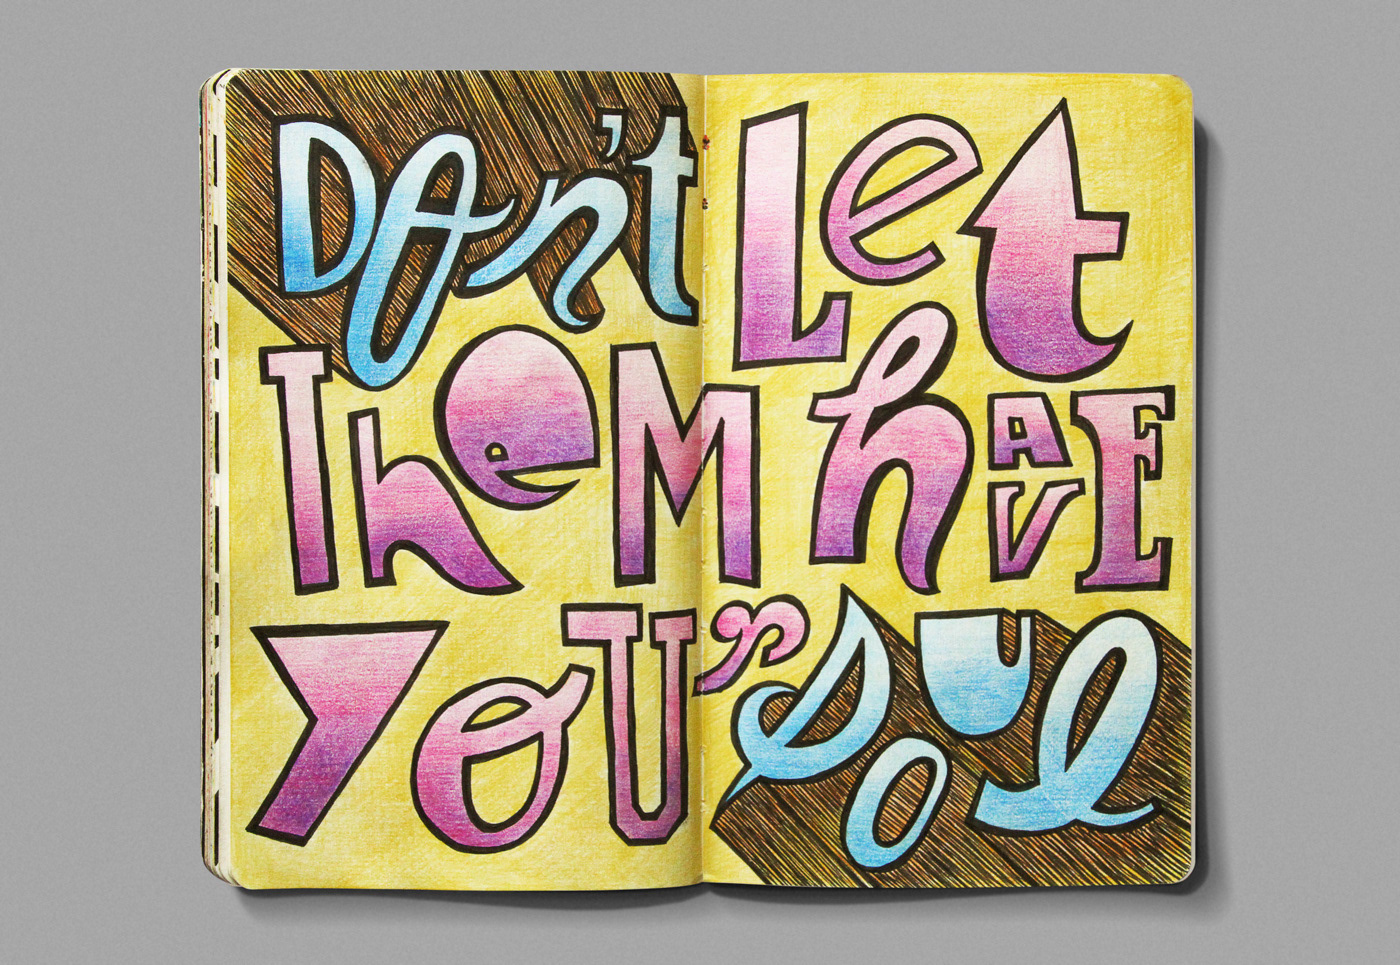 Don't Let
TheM hAVE
YoUr soul